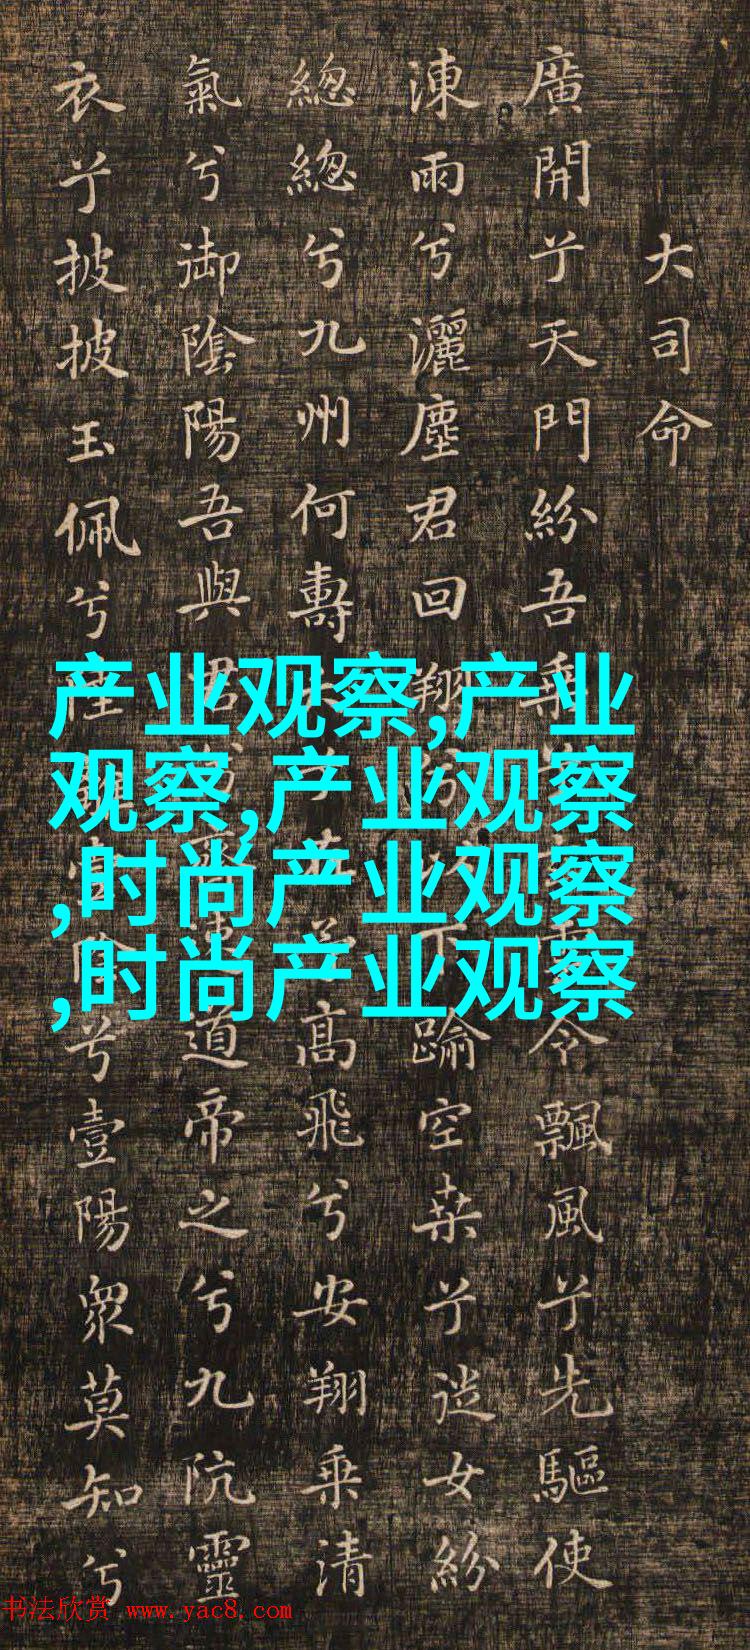 大司命
廣開兮天門紛吾乘令飄風兮先驅使
涷雨兮灑塵君回翔下踰空桒兮從女紛
總總兮九州何壽高飛兮安翔乘清
氣兮御陰陽吾與君道帝之兮九阬靈
衣兮披披玉佩兮陸兮壹陽衆莫知兮
产业观察,产业
观察,产业观察
,时尚产业观察
,时尚产业观察
书法欣赏 www.yac8.com